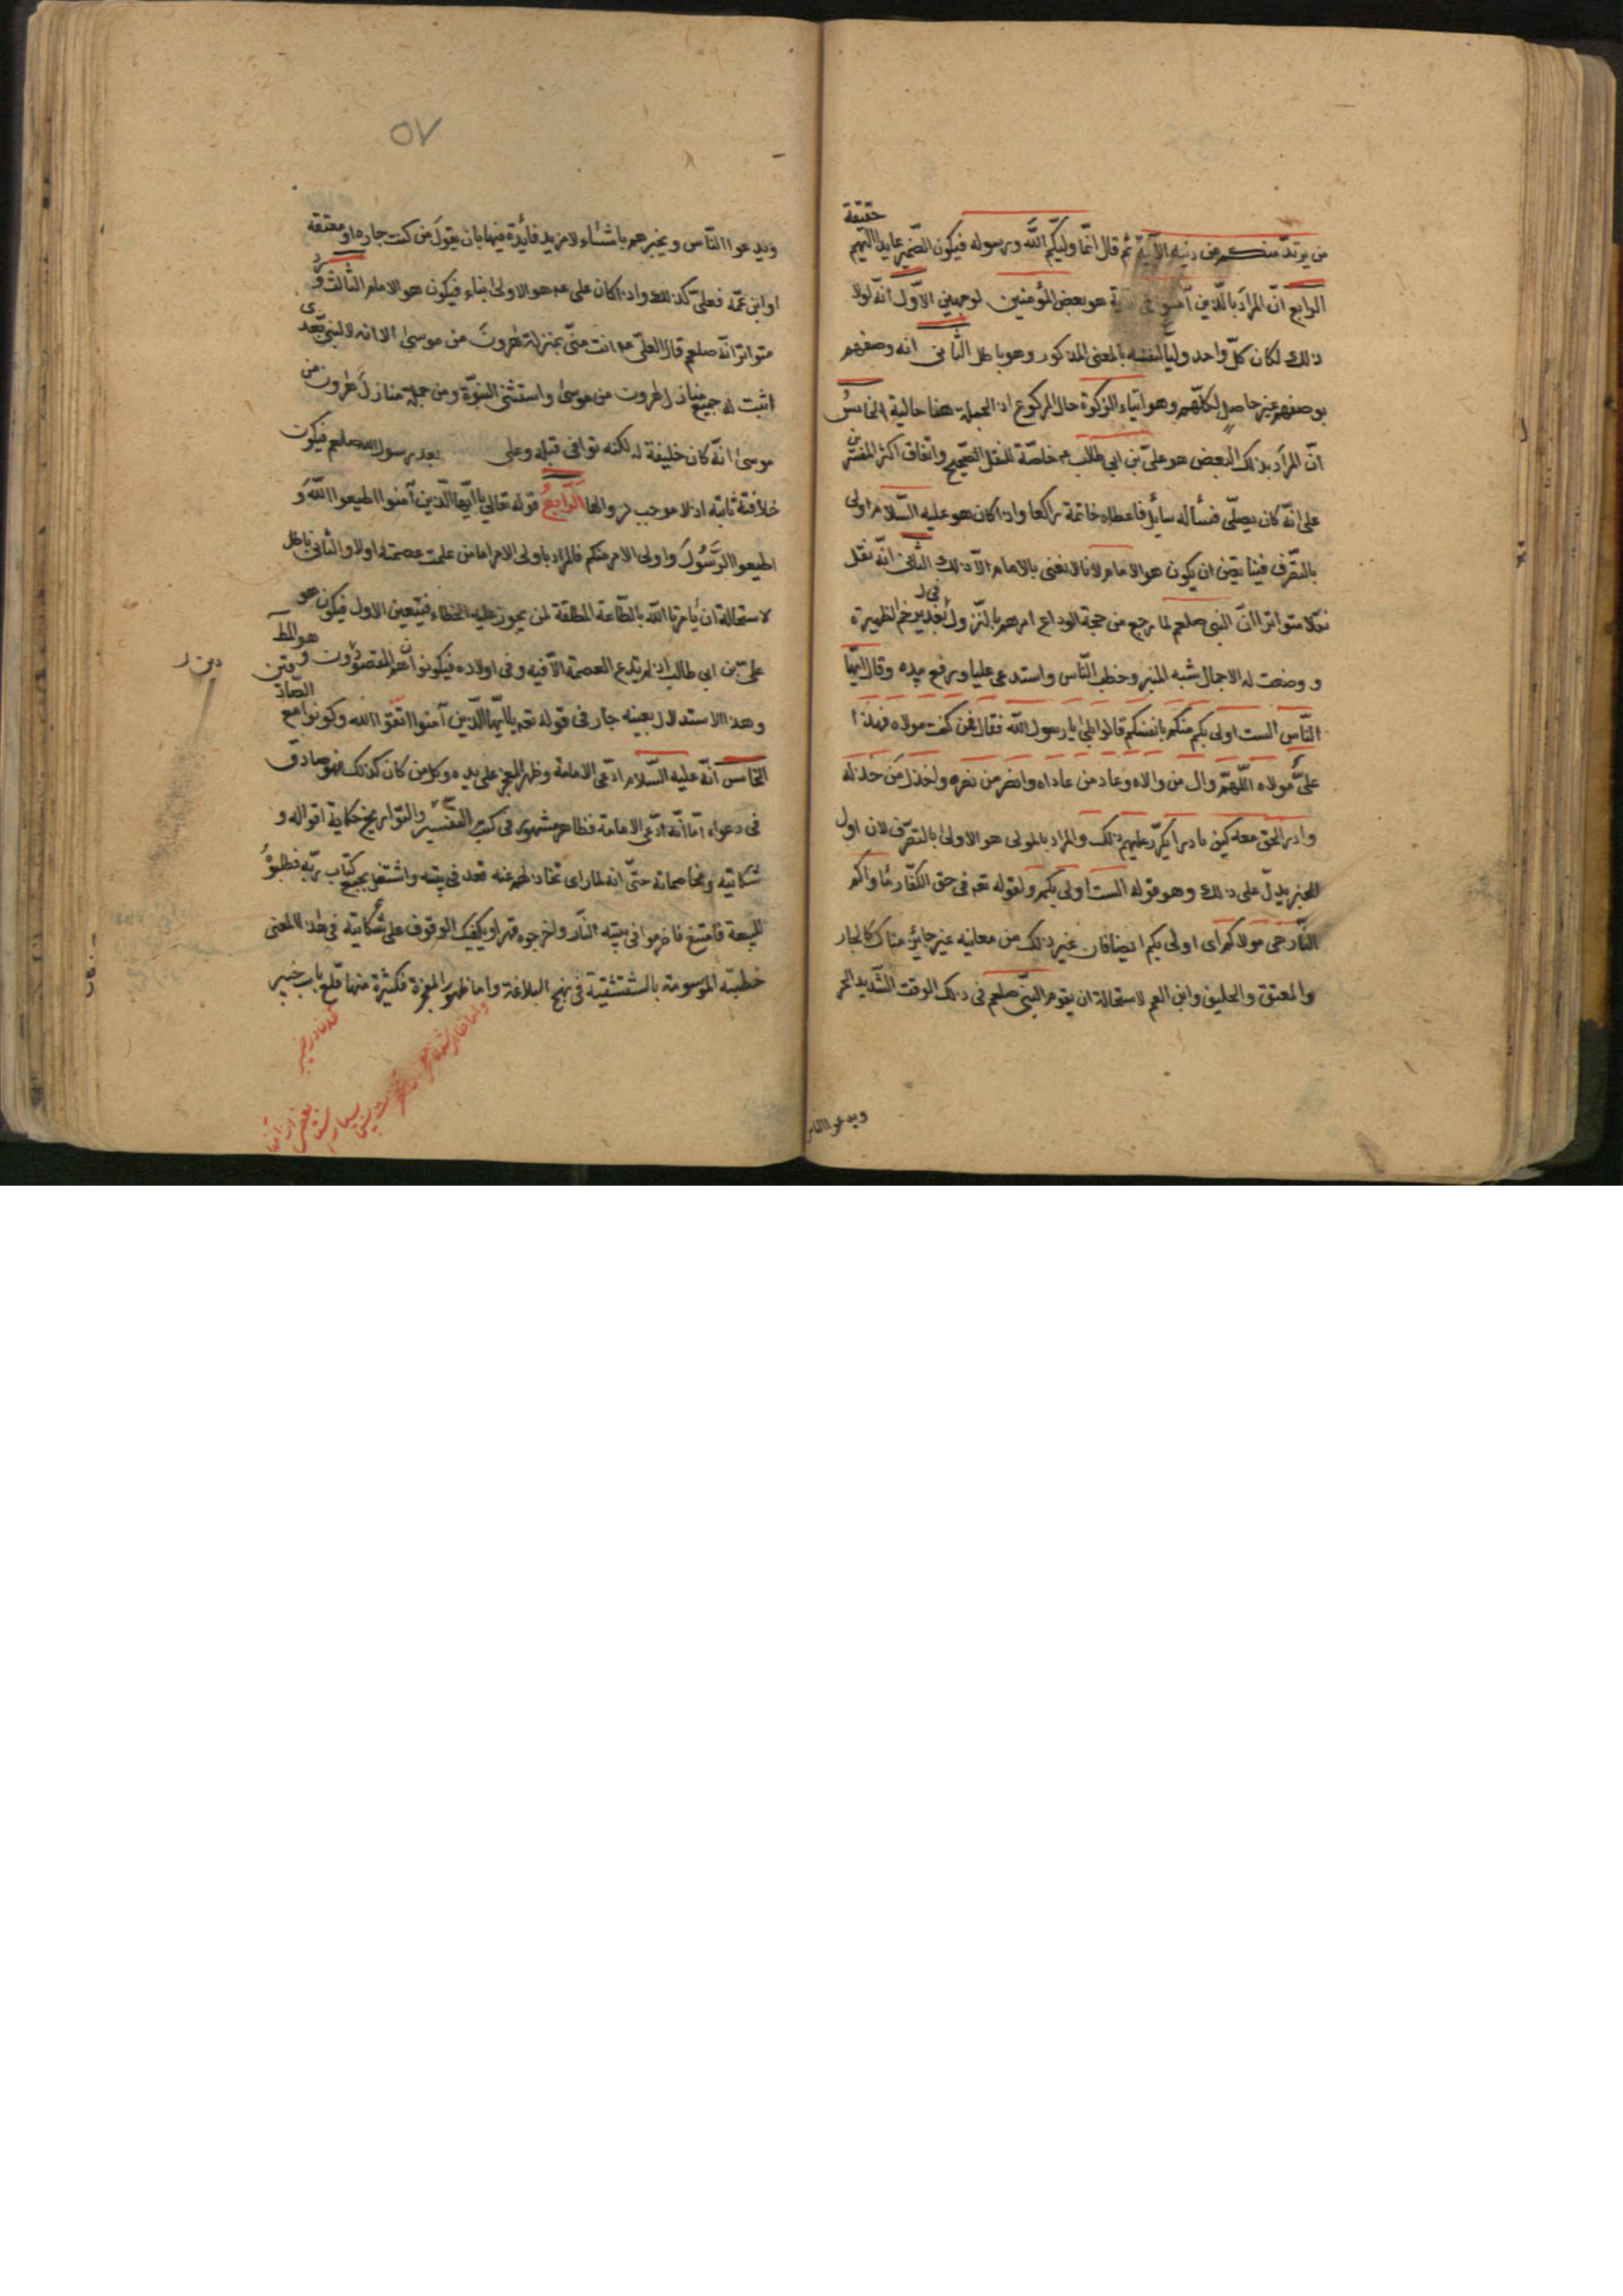 حقيقة
من يرتد منكم عن دينه الآية ثم قال انّما وليّكم اللّه ورسوله فيكون الضّمير عايدا اليهم
الرابع انّ المراد بالّذين آمنوا في الآية هو بعض المؤمنين لوجهين الاوّل انّه لولا
ذلك لكان كلّ واحد وليا لنفسه بالمعنى المذكور وهو باطل الثّانى انه وصفهم
بوصف غير حاصل لكلّهم وهو ايتاء الزكوة حال الركوع اذ الجملة هنا حالية الخامسُ
انّ المراد بذلك البعض هو علىّ بن ابي طالب عم خاصّة للنقل الصّحيح واتفاق اكثر المفسّرين
على انّه كان يصلّى فسأله سايل فاعطاه خاتمة راكعا واذا كان هو عليه السّلام اولى
بالتّصرف فينا تعيّن ان يكون هو الامام لانا لا نعنى بالامام الّا ذلك الثّانى انّه نقل
نقلا متواترا انّ النبى صلعم لما رجع من حجة الوداع امر هم بالنّزول بغدير خم في الظهيرة
و وضعت له الاجمال شبه المنبر وخطب النّاس واستدعى عليا ورفع يده وقال ايّها
النّاس الست اولى بكم منكم بانفسكم قالوا بلى يا رسول اللّه فقال فمن كنت مولاه فهذا
علىّ مولاه اللّهمّ وال من والاه وعاد من عاداه وانصر من نصره واخذل من خذله
وادر الحق معه كيف ما دار يكرّر عليهم ذلك والمراد بالمولى هو الاولى بالتصرّف لان اول
الخبر يدلّ على ذلك وهو قوله الست اولى بكم ولقوله تعم فى حق الكفّار مأواكم
النّار هى مولاكم اى اولى بكم ايضا فان غير ذلك من معانيه غير جايز هناك كالجار
والمعتق والحليف وابن العم لاستحالة ان يقوم النّبى صلعم فى ذلك الوقت الشّديد الحر
ويدعوا الناس
٥٧
ويدعوا النّاس ويخبرهم باشياء لا مزيد فايدة فيها بان يقول من كنت جاره او معتقه
او ابن عمّه فعلىّ كذلك واذا كان على عم هو الاولى بناء فيكون هو الامام الثالث ورد
متواترا انّه صلعم قال لعلىّ عم انت منّى بمنزلة هٰرون من موسى الا انه لا نبى بعدى
اثبت له جميع منازل هٰرون من موسى واستثنى النبوّة ومن جملة منازل هٰرون من
موسى انّه كان خليفة له لكنه توافى قبله وعلى بعد رسول اللّه صلعم فيكون
خلافته ثابتة اذ لا موجب لزوالها الرّابعُ قوله تعالى يا ايّها الّذين آمنوا اطيعوا اللّه و
اطيعوا الرّسُول واولى الامر منكم فالمراد باولى الامر اما من علمت عصمته اولا والثانى باطل
لاستحالة ان يأمرنا اللّه بالطّاعة المطلقة لمن يجوز عليه الخطاء فيتعين الاول فيكون هو
علىّ بن ابي طالب اذ لم يدّع العصمة الّا فيه وفى اولاده فيكونوا هم المقصودون وهو المط
دين
وهذا الاستدلال بعينه جار فى قوله تعم يا ايّها الّذين آمنوا اتّقوا اللّه وكونوا مع الصادقين
الخامس انّه عليه السّلام ادّعى الامامة وظهر المعجز على يده وكل من كان كذلك فهو صادق
فى دعواه امّا انّه ادّعى الامامة فظاهر مشهور فى كتب السير والتواريخ حكاية اقواله و
شكايته ومخاصماته حتّى انه لما راى تخاذلهم عنه قعد فى بيته واشتغل بجمع كتاب ربّه فطلبوهُ
للبيعة فامتنع فاضرموا فى بيته النّار واخرجوه قهرا ويكفيك الوقوف على شكايته فى هذا المعنى
خطبته الموسومة بالشقشقية فى نهج البلاغة واما ظهور المعجزة فكثيرة منها قلع باب خيبر